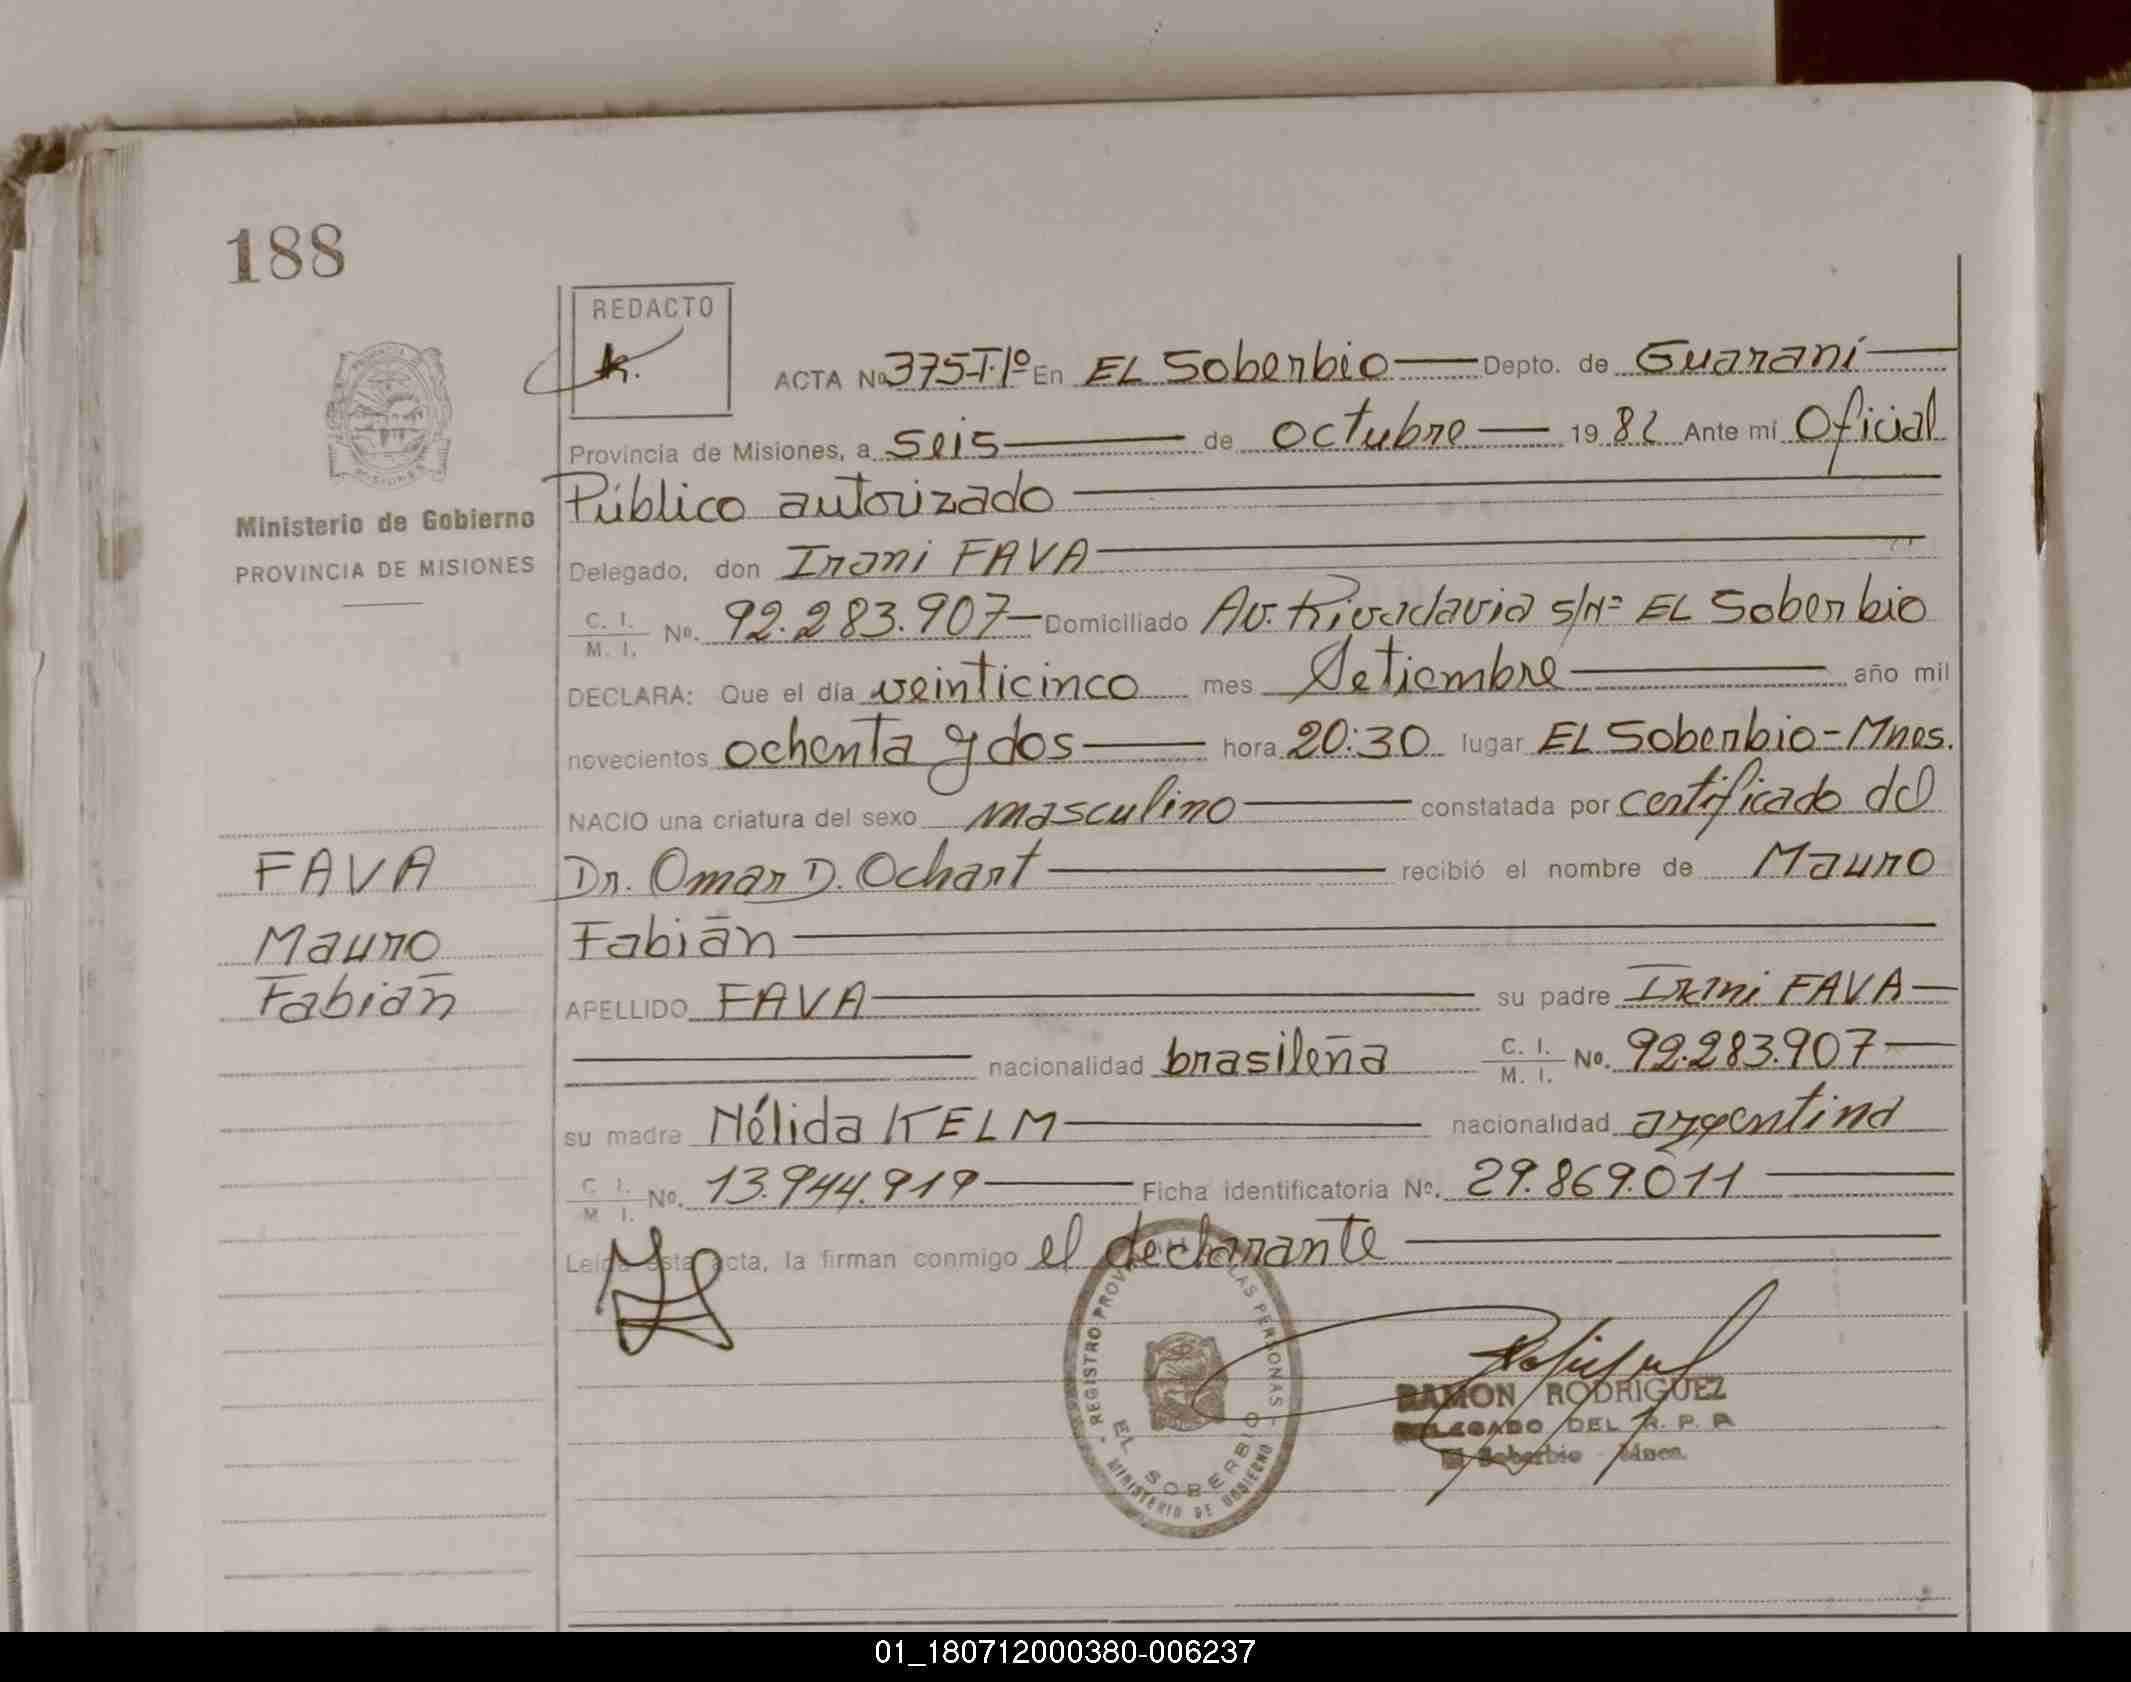 188
REDACTO
ACTA Nº 375-T.Iº En EL Soberbio Depto. de Guaraní
Provincia de Misiones, a seis de octubre 1982 Ante mí Oficial
Público autorizado
Ministerio de Gobierno
PROVINCIA DE MISIONES
Delegado, don Irani FAVA
C. I. M. I. Nº. 92.283.907 Domiciliado Av. Rivadavia s/Nº EL Soberbio
DECLARA: Que el día veinticinco mes Setiembre año mil
novecientos ochenta y dos hora 20:30 lugar EL Soberbio-Mnes.
NACIO una criatura del sexo masculino constatada por certificado del
FAVA
Dr. Omar D. Ochart recibió el nombre de Mauro
Mauro
Fabián
Fabián
APELLIDO FAVA su padre Irani FAVA
nacionalidad brasileña C. I. M. I. Nº. 92.283.907
su madre Nélida KELM nacionalidad argentina
C. I. M. I. Nº. 13.944.919 Ficha identificatoria Nº. 29.869.011
Leida esta acta, la firman conmigo el declarante
REGISTRO PROV LAS PERSONAS
EL SOBERBIO
MINISTERIO DE GOBIERNO
RAMON RODRIGUEZ
DELEGADO DEL R. P. P.
El Soberbio - Mnes.
01_180712000380-006237